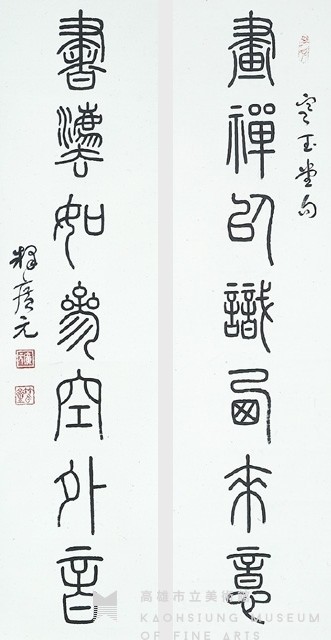 寒玉堂句
畫禪識西來意
書灋如參空外音
釋廣元
高雄市立美術館
KAOHSIUNG MUSEUM
OF FINE ARTS